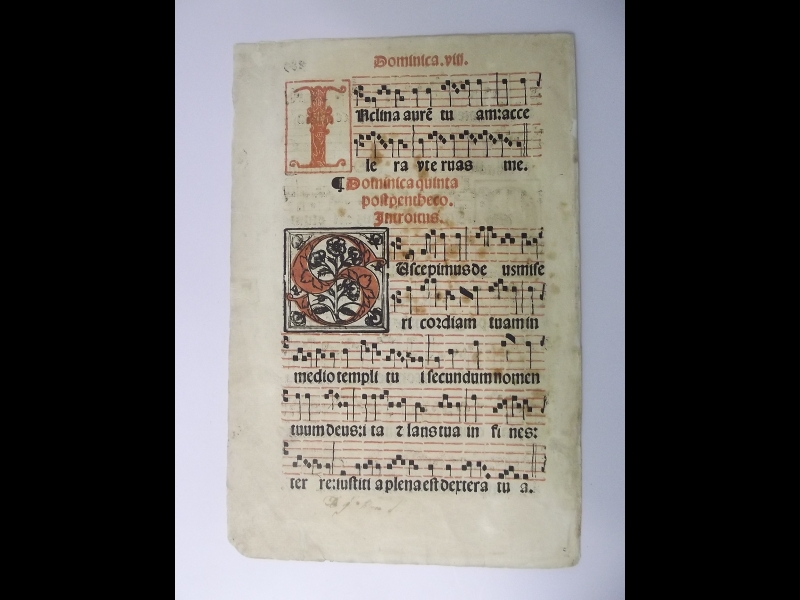 Dominica.viij.
INclina aurē tu am:acce
le ra vte ruas me.
¶Dominica quinta
post pentheco.
Introitus.
SUscepimus de us mise
ri cordiam tuam in
medio templi tu i secundum nomen
tuum deus:i ta ⁊ laus tua in fi nes:
ter re:iustiti a plena est dextera tu a.